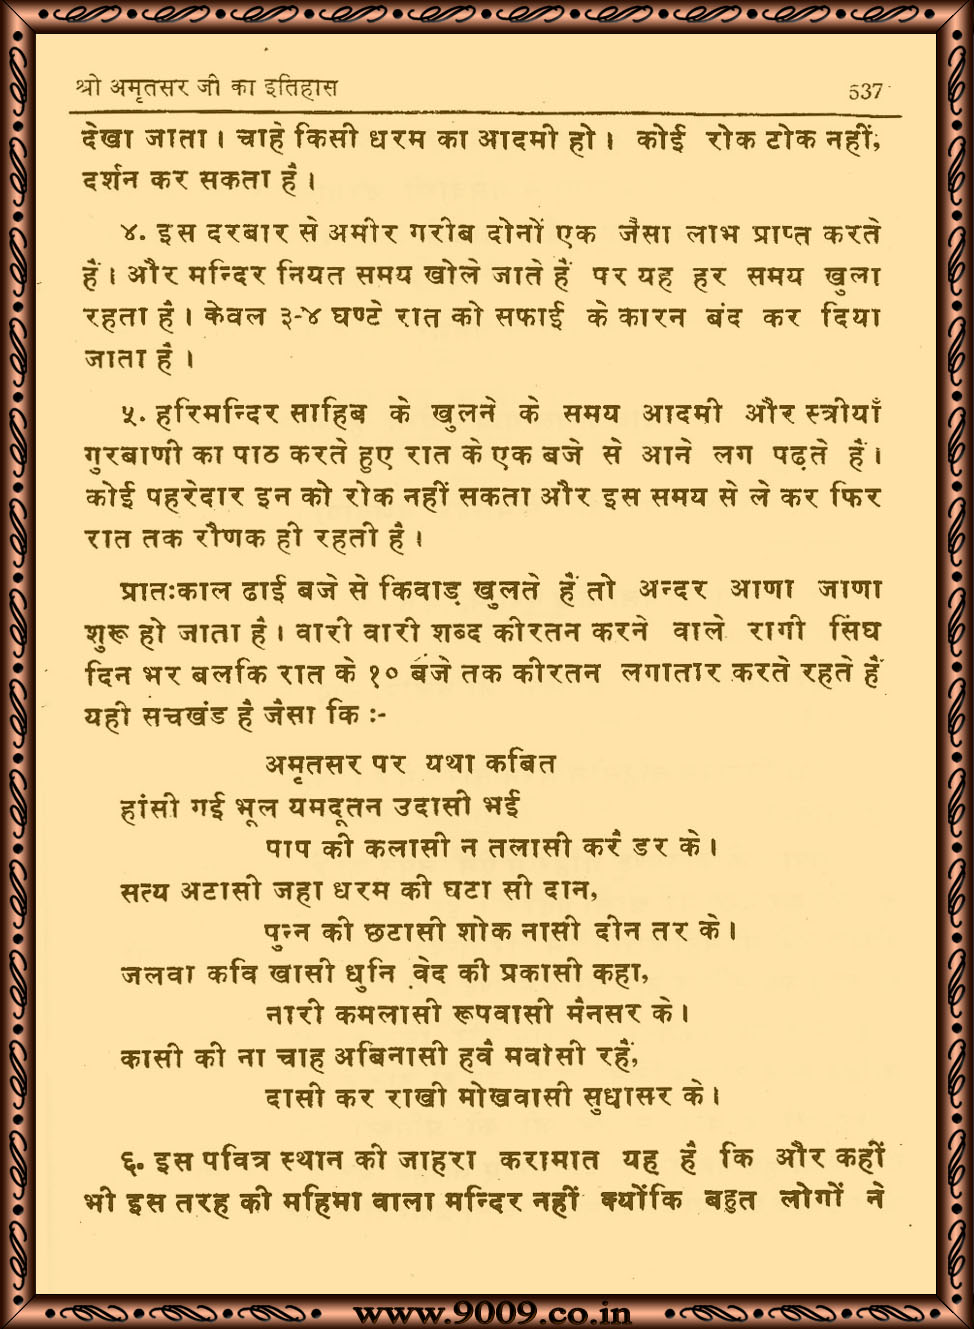 श्री अमृतसर जी का इतिहास 537
देखा जाता । चाहे किसी धरम का आदमी हो । कोई रोक टोक नहीं,
दर्शन कर सकता है ।
४. इस दरबार से अमीर गरीब दोनों एक जैसा लाभ प्राप्त करते
हैं । और मन्दिर नियत समय खोले जाते हैं पर यह हर समय खुला
रहता है । केवल ३-४ घण्टे रात को सफाई के कारन बंद कर दिया
जाता है ।
५. हरिमन्दिर साहिब के खुलने के समय आदमी और स्त्रीयाँ
गुरबाणी का पाठ करते हुए रात के एक बजे से आने लग पढ़ते हैं ।
कोई पहरेदार इन को रोक नहीं सकता और इस समय से ले कर फिर
रात तक रौणक ही रहती है ।
प्रातःकाल ढाई बजे से किवाड़ खुलते हैं तो अन्दर आणा जाणा
शुरू हो जाता है । वारी वारी शब्द कीरतन करने वाले रागी सिंघ
दिन भर बलकि रात के १० बजे तक कीरतन लगातार करते रहते हैं
यही सचखंड है जैसा कि :-
अमृतसर पर यथा कबित
हांसी गई भूल यमदूतन उदासी भई
पाप की कलासी न तलासी करैं डर के ।
सत्य अटासी जहा धरम की घटा सी दान,
पुन्न की छटासी शोक नासी दीन तर के ।
जलवा कवि खासी धुनि वेद की प्रकासी कहा,
नारी कमलासी रूपवासी मैनसर के ।
कासी की ना चाह अबिनासी हवै मवासी रहैं,
दासी कर राखी मोखवासी सुधासर के ।
६. इस पवित्र स्थान की जाहरा करामात यह है कि और कहीं
भी इस तरह की महिमा वाला मन्दिर नहीं क्योंकि बहुत लोगों ने
www.9009.co.in